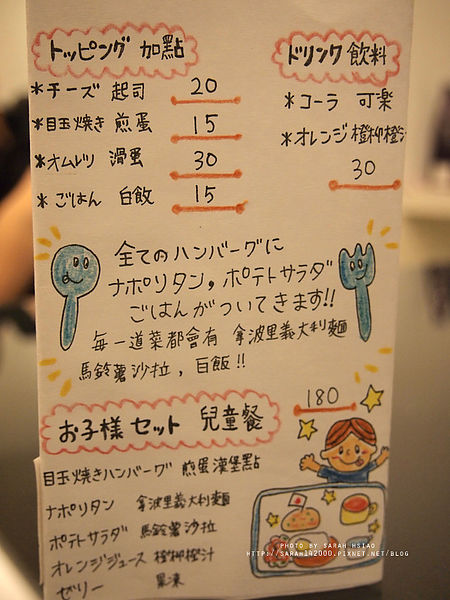 トッピング 加點
*チーズ 起司 20
*目玉焼き 煎蛋 15
*オムレツ 滑蛋 30
*ごはん 白飯 15
ドリンク 飲料
*コーラ 可楽
*オレンジ 橙柳橙汁
30
全てのハンバーグに
ナポリタン,ポテトサラダ
ごはんがついてきます!!
每一道菜都會有 拿波里義大利麵
馬鈴薯沙拉,白飯!!
お子様セット 兒童餐 180
目玉焼きハンバーグ 煎蛋漢堡點
ナポリタン 拿波里義大利麵
ポテトサラダ 馬鈴薯沙拉
オレンジジュース 橙柳橙汁
ゼリー 果凍
PHOTO BY SARAH HSIAO
HTTP://SARAH142000.PIXNET.NET/BLOG